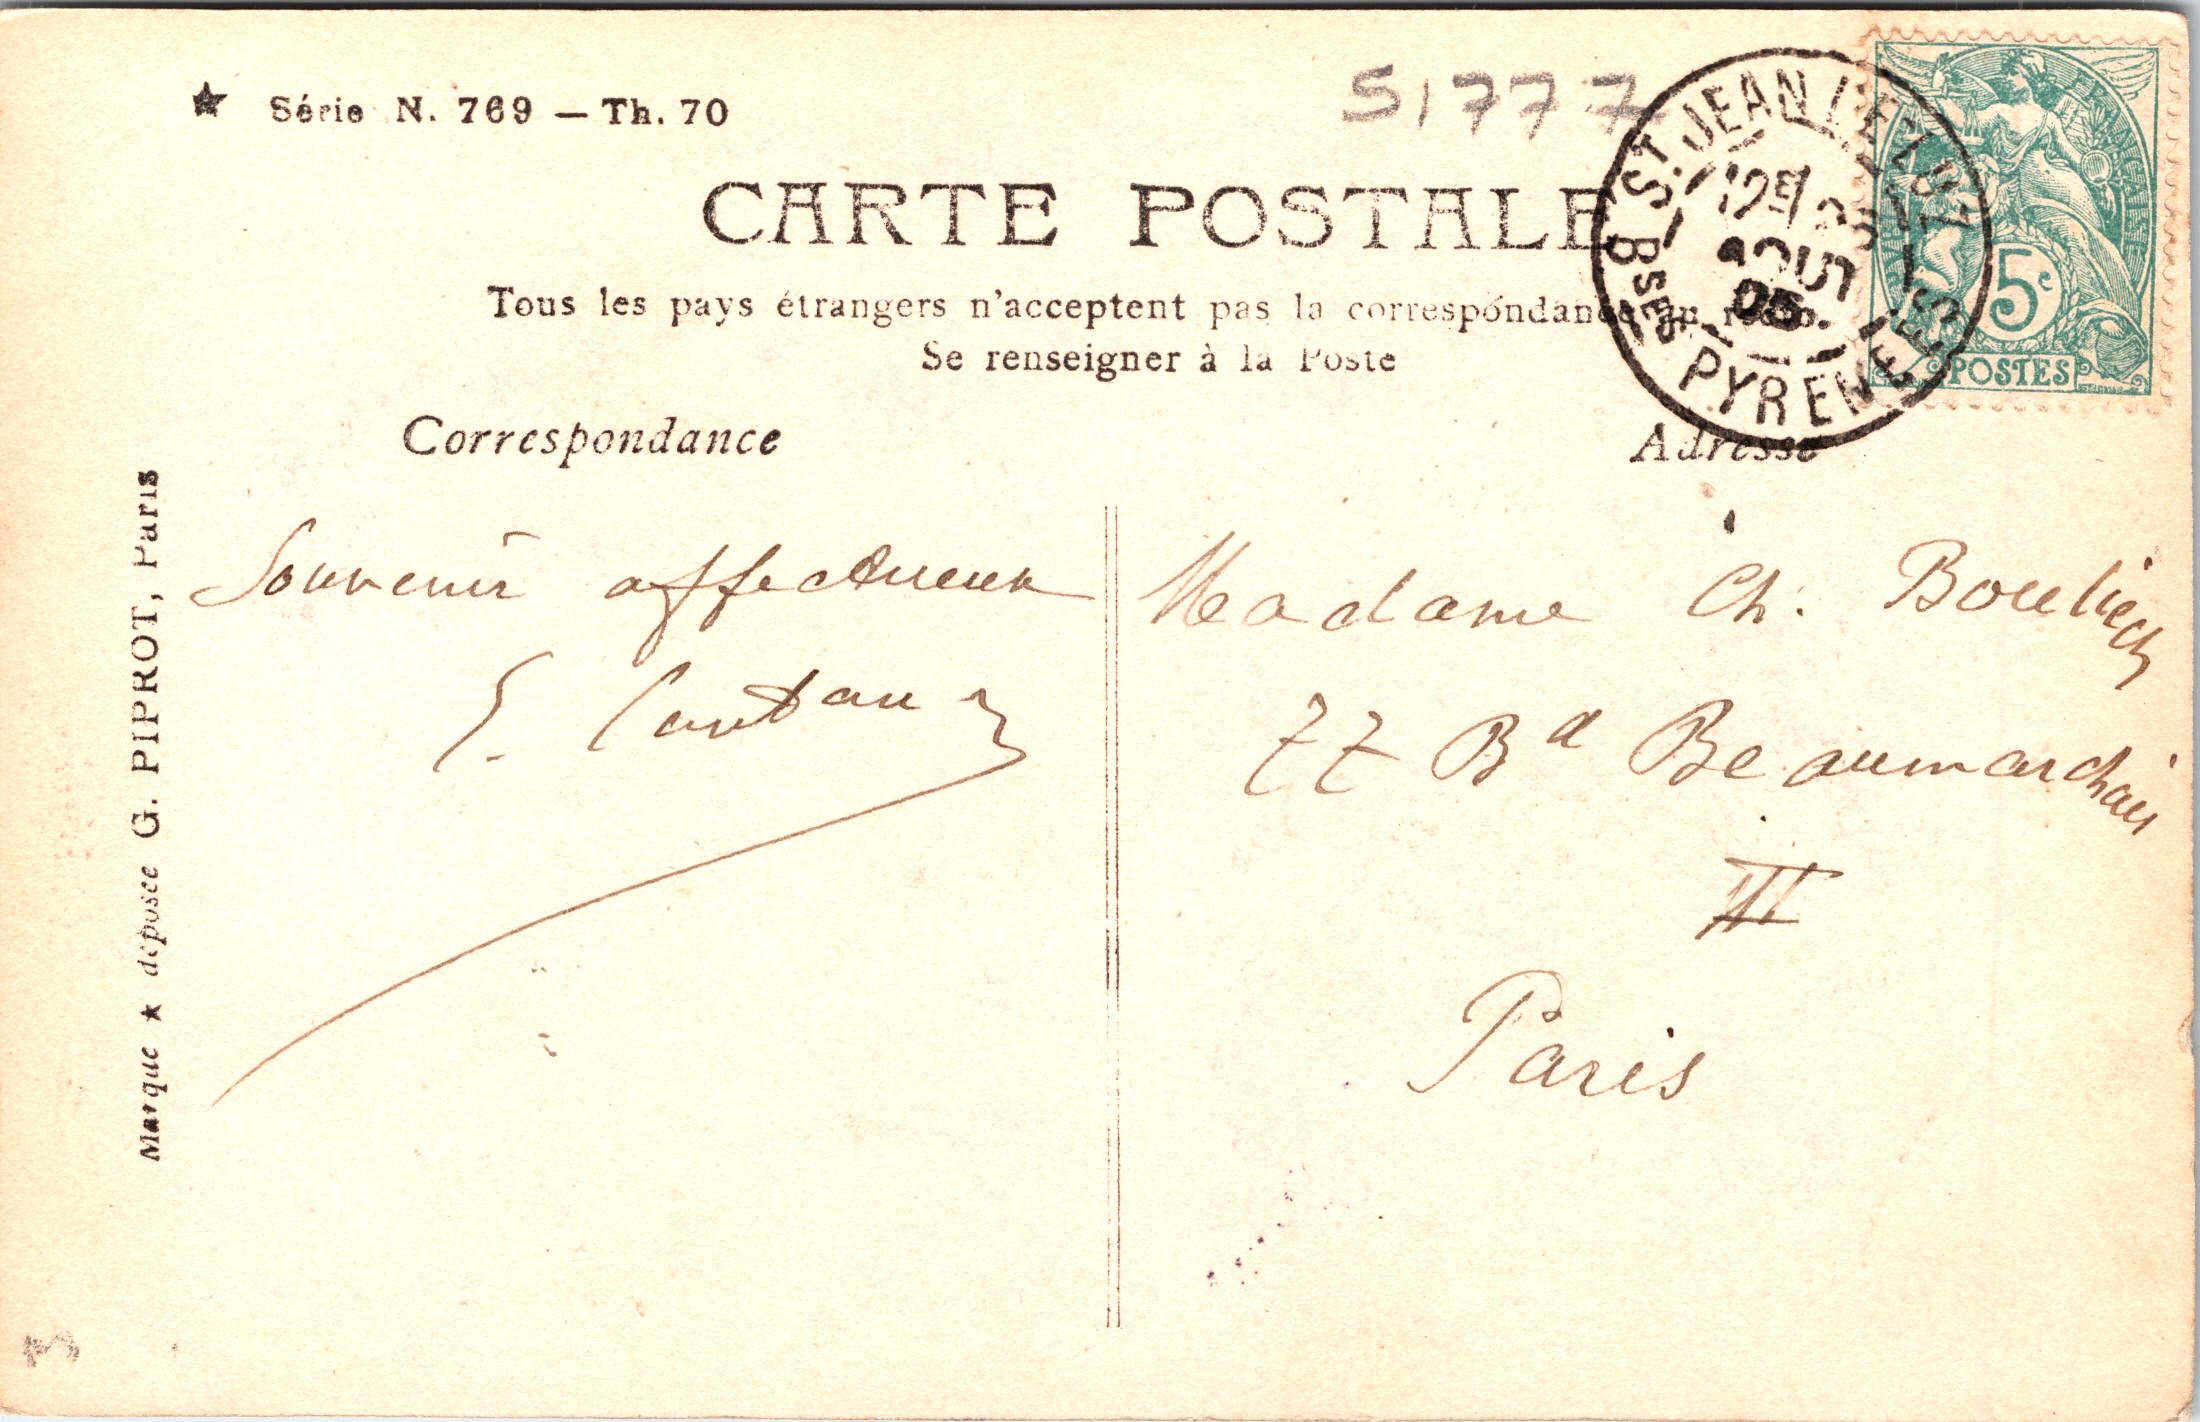 ★ Série N. 769 — Th. 70
51777
CARTE POSTALE
Tous les pays étrangers n'acceptent pas la correspondance au recto.
Se renseigner à la Poste
Correspondance
Adresse
ST JEAN DE LUZ
AOUT
05
Bses PYRENEES
REPUBLIQUE FRANÇAISE
5c
POSTES
Marque ★ déposée G. PIPROT, Paris
Souvenir affectueux
Madame Ch.
77 Bd Beaumarchais
III
Paris